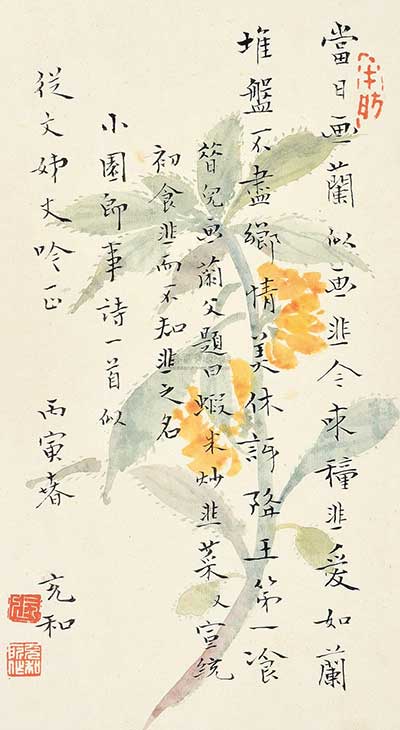 當日畫蘭似畫韭今來種韭愛如蘭
堆盤不盡鄉情美休訝降王第一飡
兒畫蘭父題曰蝦米炒韭菜又宣統
初食韭而不知韭之名
小園即事詩一首似
從文姊丈吟正
丙寅春 充和